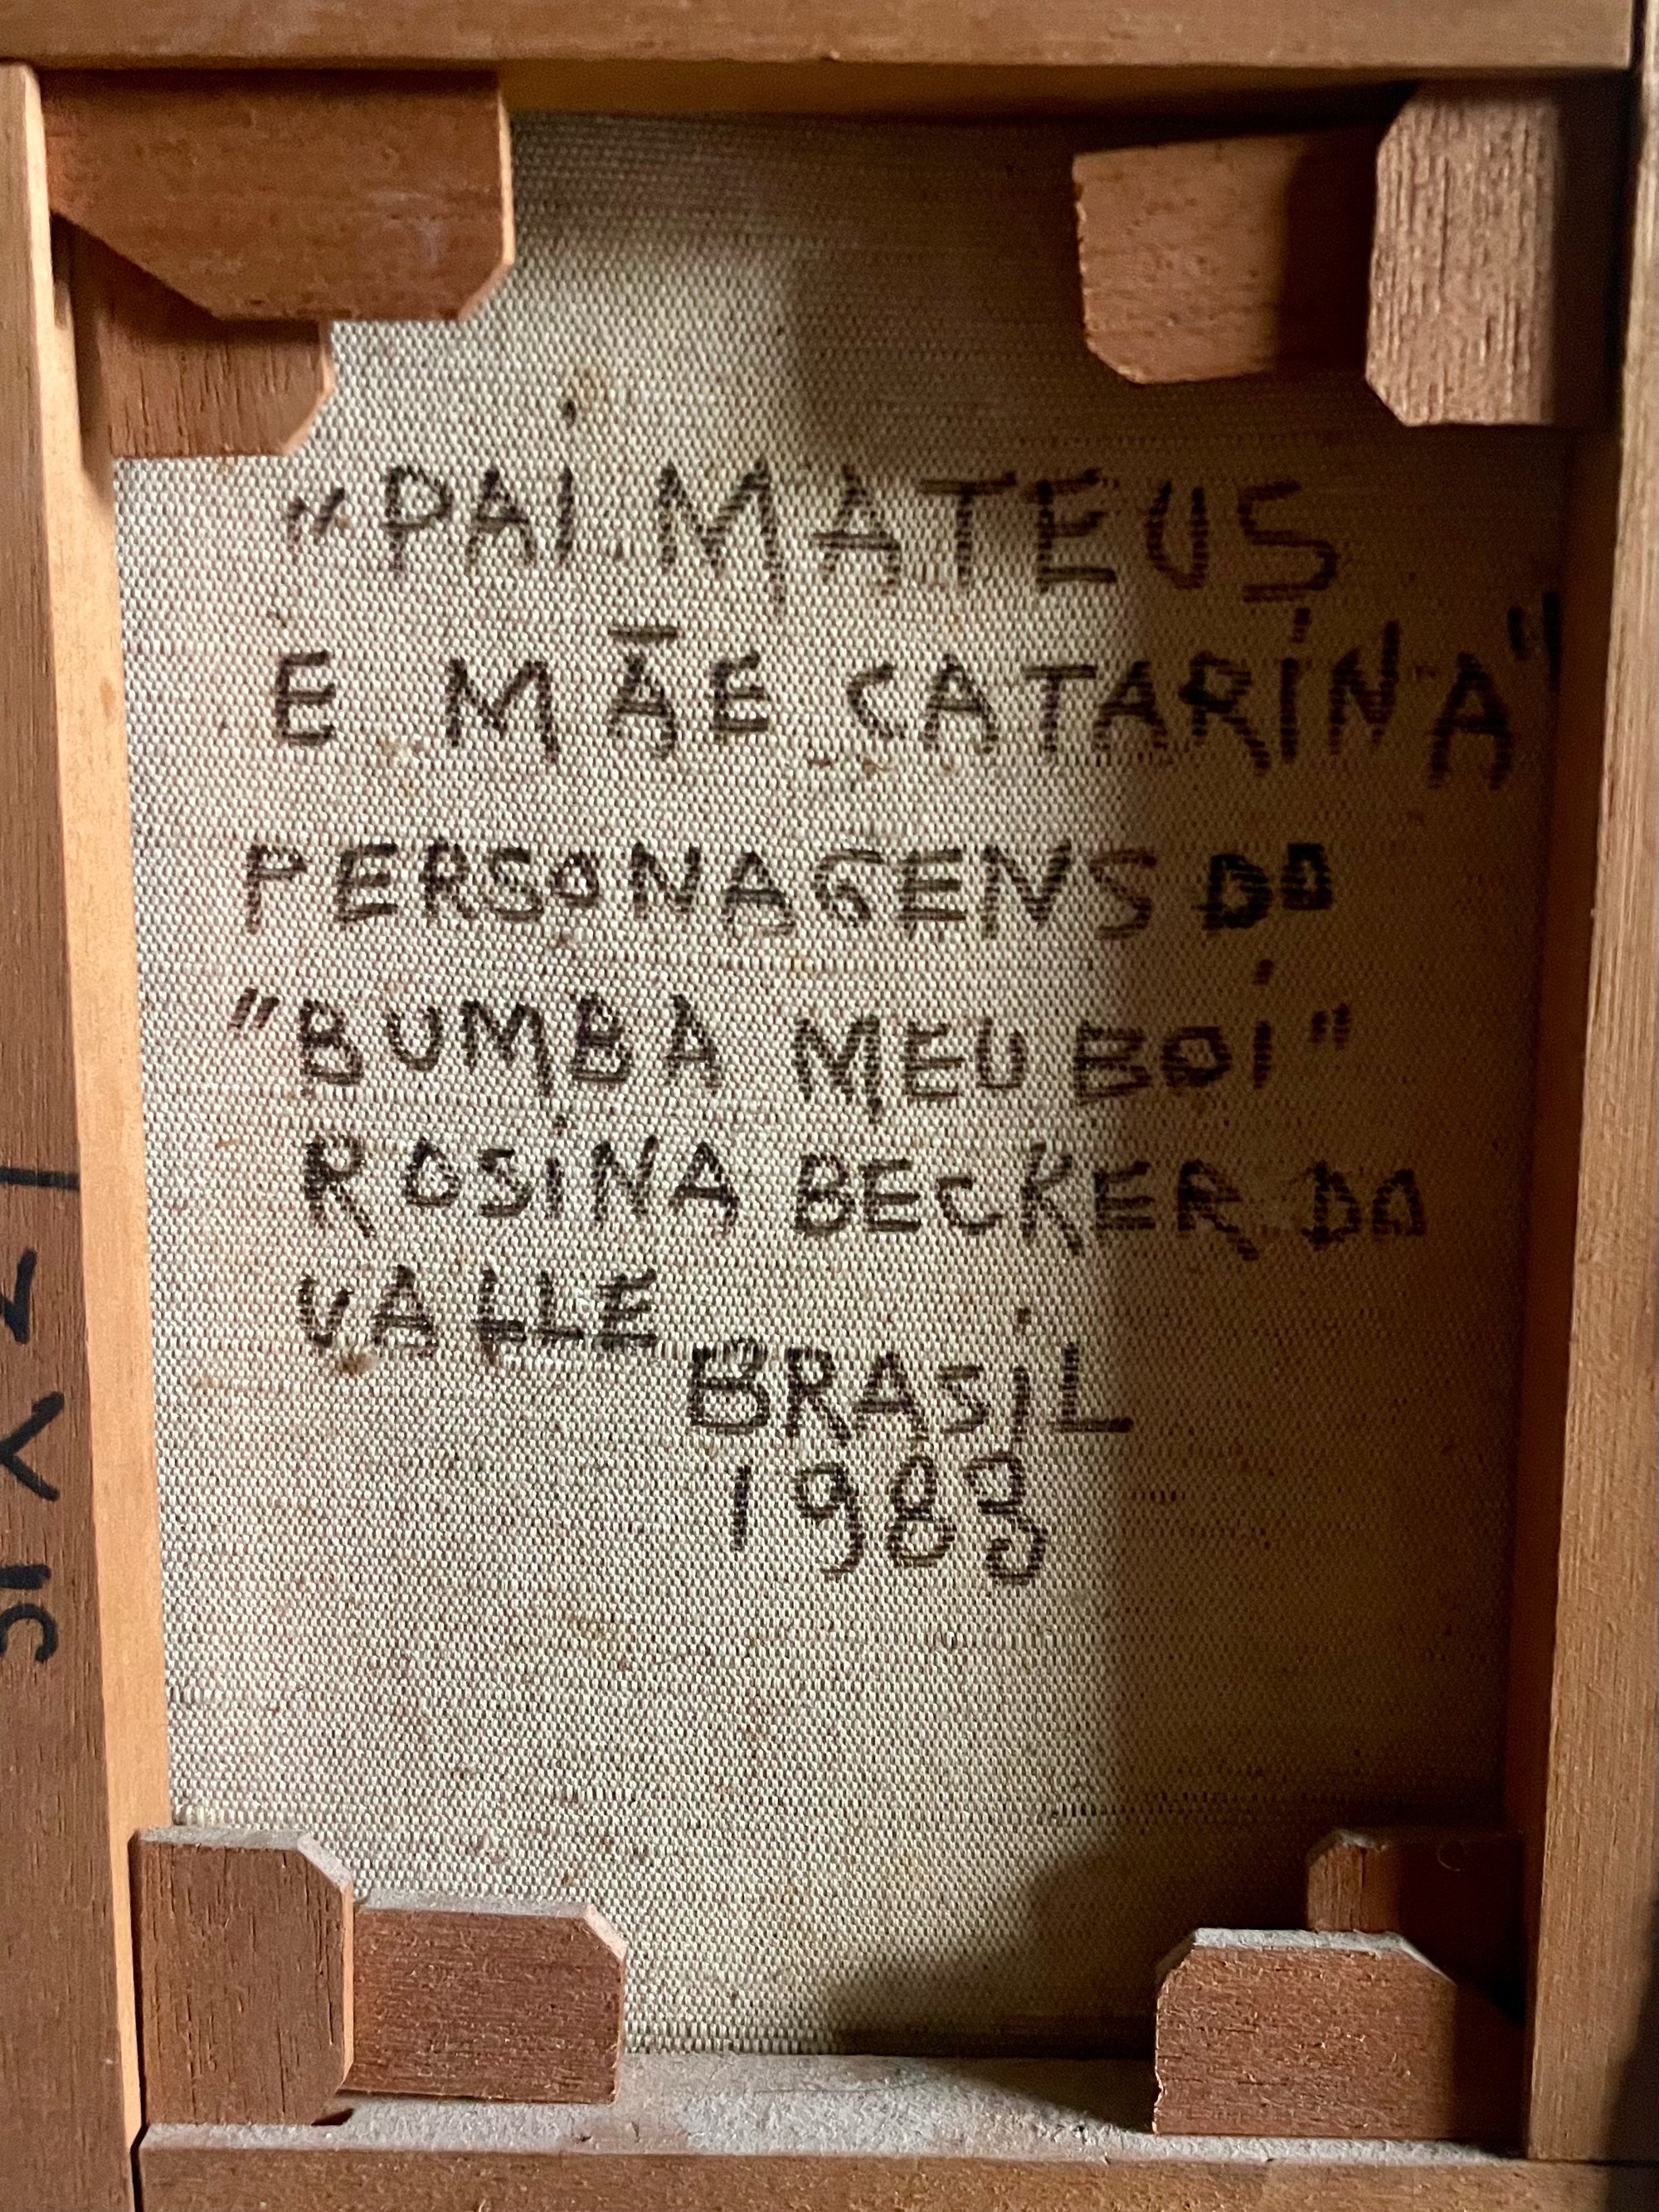 "PAI MATEUS
E MÃE CATARINA"
PERSONAGENS DO
"BUMBA MEU BOI"
ROSINA BECKER DO
VALLE
BRASIL
1983